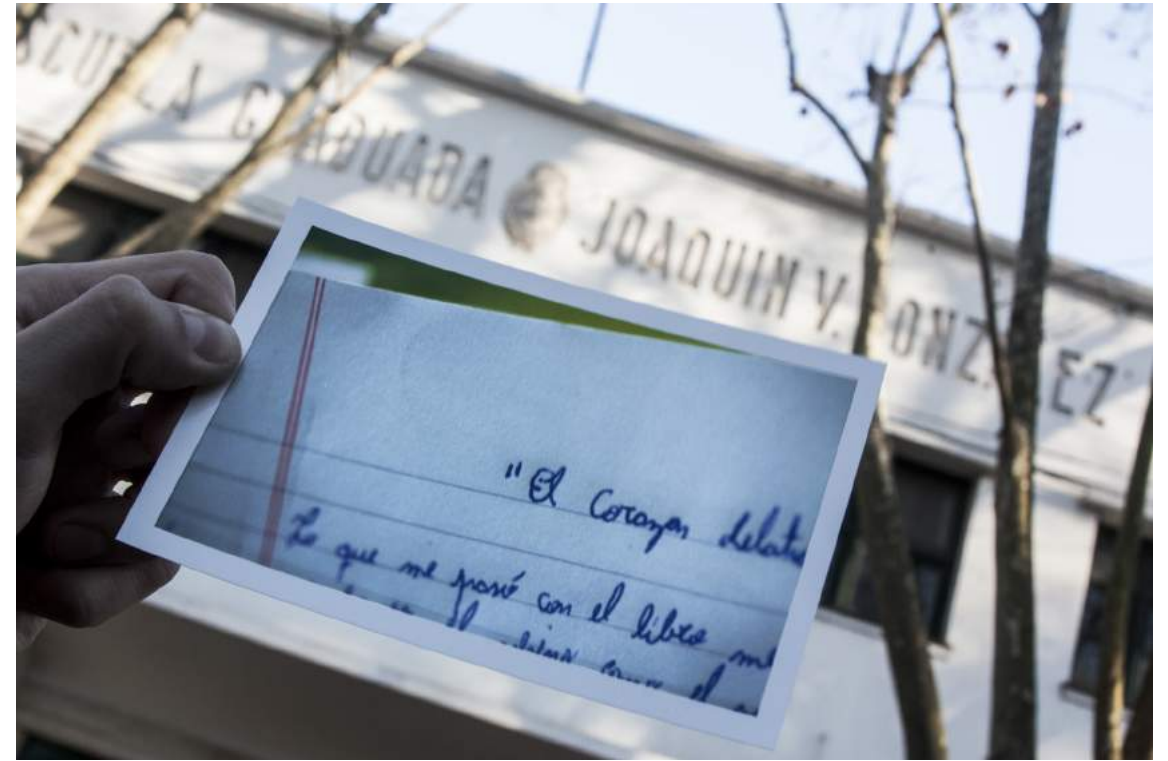 SCUELA GRADUADA JOAQUIN V. GONZALEZ
"El Corazon delato
Lo que me pasó con el libro me